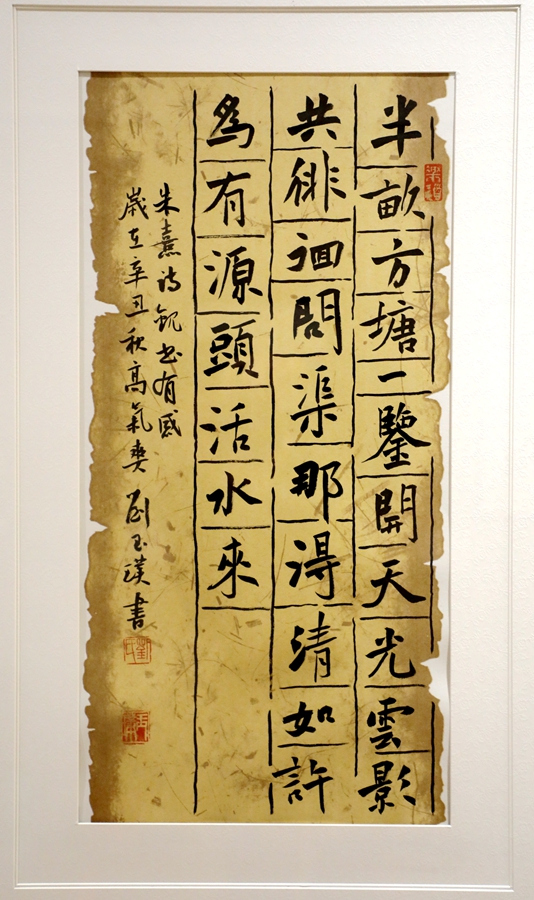 半畝方塘一鑒開天光雲影
共徘徊問渠那得清如許
為有源頭活水來
朱熹詩觀書有感
歲在辛丑秋高氣爽 劉玉璞書